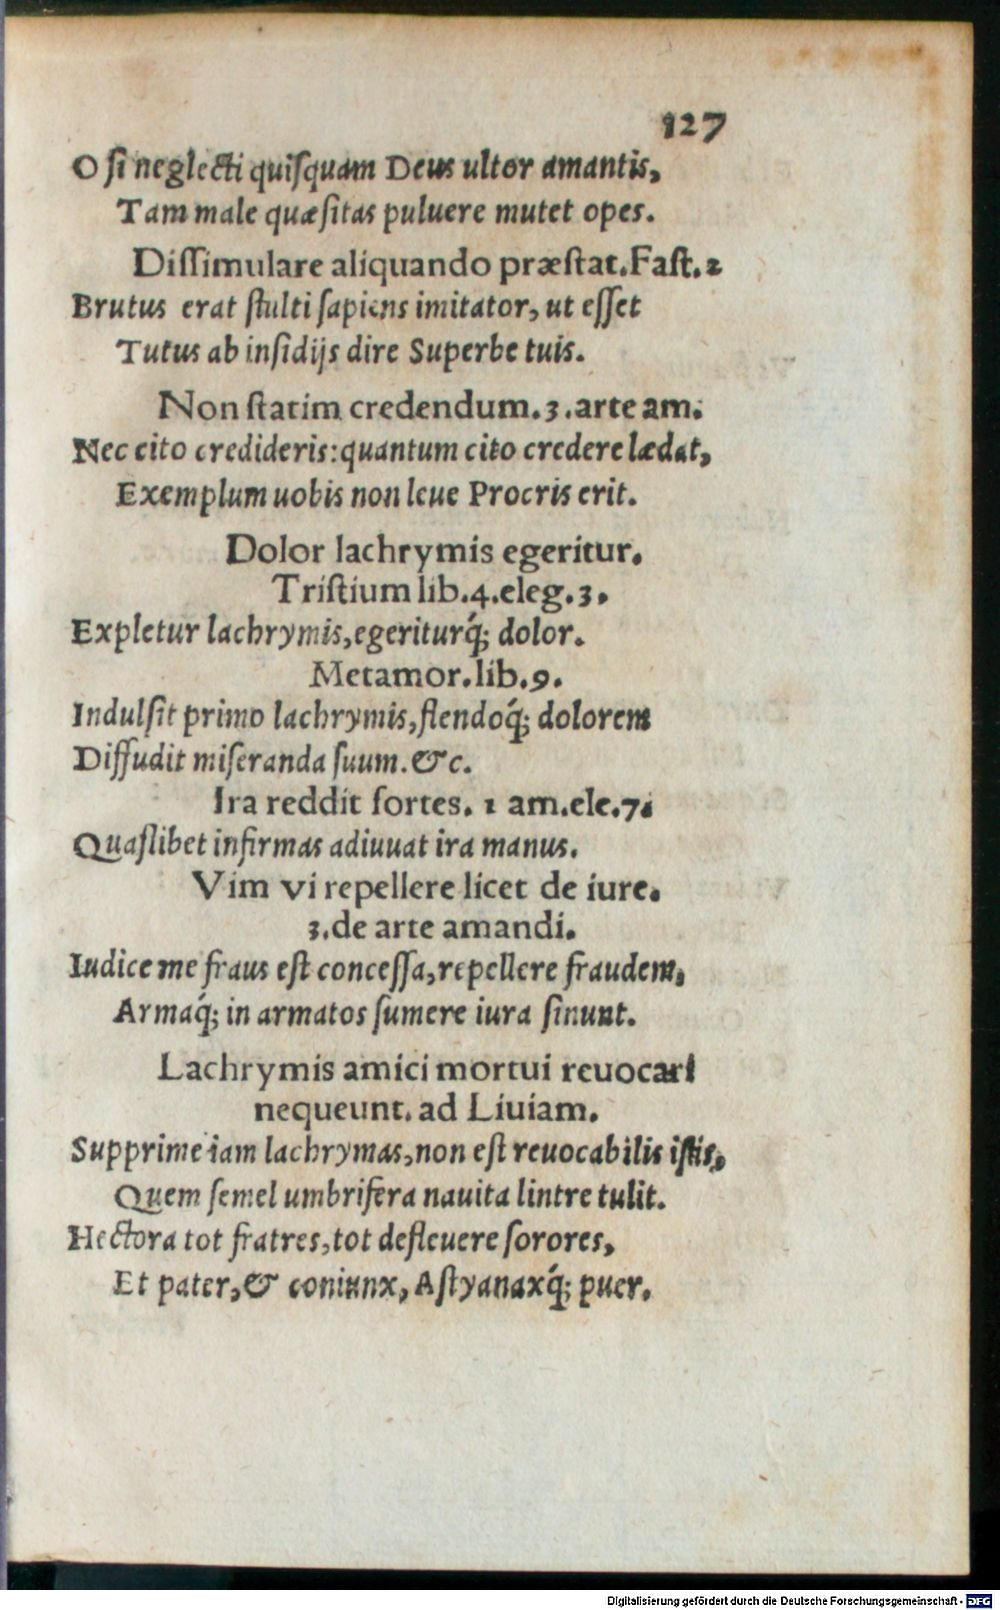 127
O ſi neglecti quiſquam Deus ultor amantis,
Tam male quæſitas puluere mutet opes.
Diſſimulare aliquando præſtat.Faſt.2
Brutus erat ſtulti ſapiens imitator, ut eſſet
Tutus ab inſidijs dire Superbe tuis.
Non ſtatim credendum.3.arte am.
Nec cito credideris:quantum cito credere lædat,
Exemplum uobis non leue Procris erit.
Dolor lachrymis egeritur.
Triſtium lib.4.eleg.3.
Expletur lachrymis,egeriturq́; dolor.
Metamor.lib.9.
Indulſit primo lachrymis,flendoq́; dolorem
Diffudit miſeranda ſuum.&c.
Ira reddit fortes. 1 am.ele.7.
Quaſlibet infirmas adiuuat ira manus.
Vim vi repellere licet de iure.
3.de arte amandi.
Iudice me fraus eſt conceſſa,repellere fraudem,
Armaq́; in armatos ſumere iura ſinunt.
Lachrymis amici mortui reuocari
nequeunt. ad Liuiam.
Supprime iam lachrymas,non eſt reuocabilis iſtis,
Quem ſemel umbrifera nauita lintre tulit.
Hectora tot fratres,tot defleuere ſorores,
Et pater,& coniunx, Aſtyanaxq́; puer.
Digitalisierung gefördert durch die Deutsche Forschungsgemeinschaft - DFG